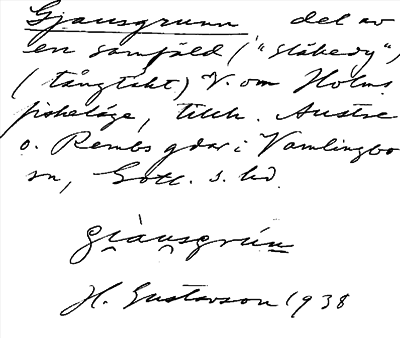 Gjausgrunn del av
en samfäld ("släkedy")
(tångtäkt) V. om Holms
fiskeläge, tillh. Austre
o. Rembs gdar i Vamlingbo
sn, Gotl. s. hd
giàusgrún
H. Gustavson 1938